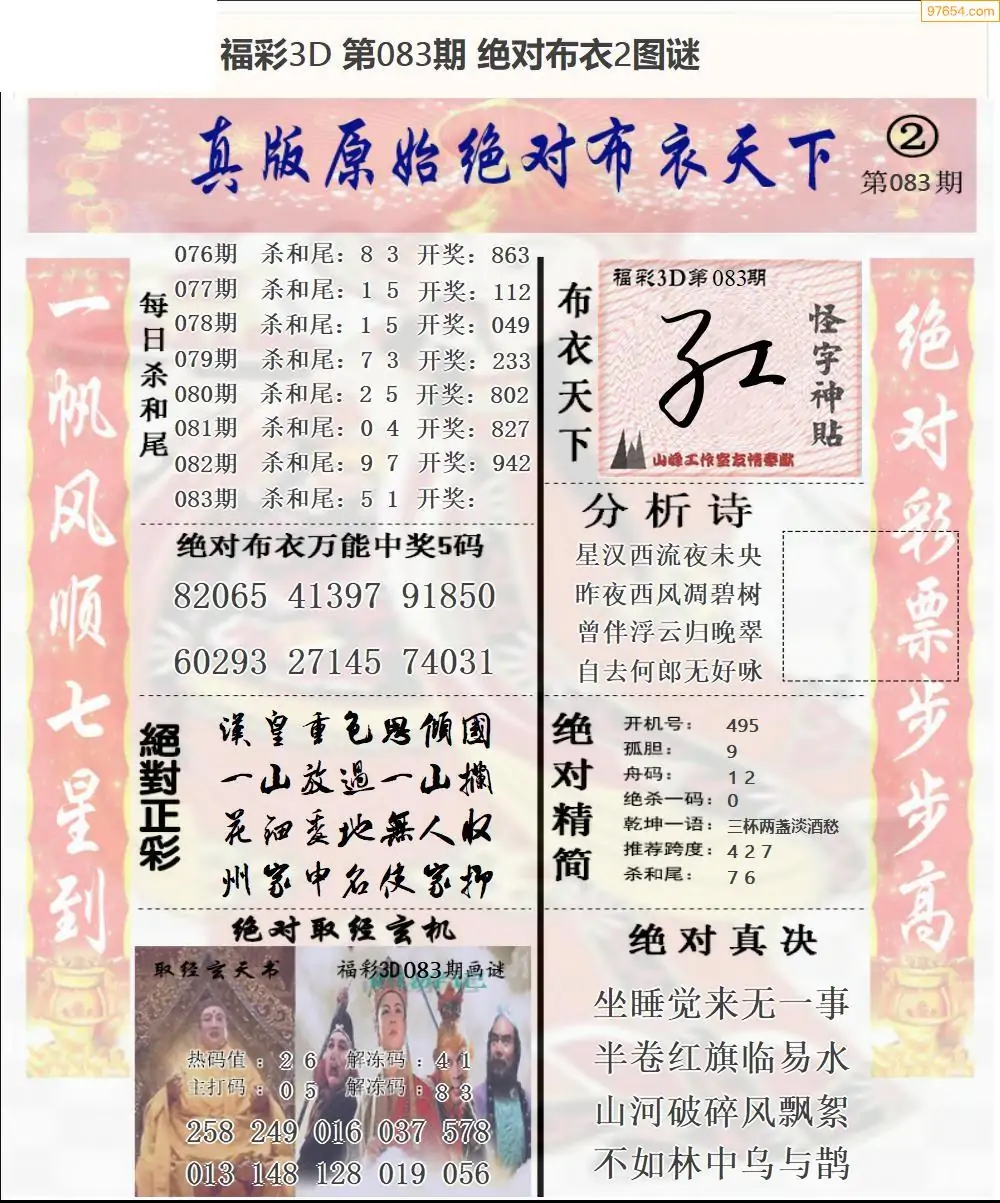 97654.com
福彩3D 第083期 绝对布衣2图谜
真版原始绝对布衣天下
②
第083期
一帆风顺七星到
每日杀和尾
076期 杀和尾: 8 3 开奖: 863
077期 杀和尾: 1 5 开奖: 112
078期 杀和尾: 1 5 开奖: 049
079期 杀和尾: 7 3 开奖: 233
080期 杀和尾: 2 5 开奖: 802
081期 杀和尾: 0 4 开奖: 827
082期 杀和尾: 9 7 开奖: 942
083期 杀和尾: 5 1 开奖:
绝对布衣万能中奖5码
82065 41397 91850
60293 27145 74031
絕對正彩
漢皇重色思傾國
一山放過一山攔
花細委地無人收
州家申名使家抑
绝对取经玄机
取经玄天书
福彩3D083期画谜
热码值 : 2 6 解冻码 : 4 1
主打码 : 0 5 解冻码 : 8 3
258 249 016 037 578
013 148 128 019 056
布衣天下
福彩3D第083期
红
怪字神貼
山峰工作室友情奉献
分析诗
星汉西流夜未央
昨夜西风凋碧树
曾伴浮云归晚翠
自去何郎无好咏
绝对精简
开机号: 495
孤胆: 9
舟码: 1 2
绝杀一码: 0
乾坤一语: 三杯两盏淡酒愁
推荐跨度: 4 2 7
杀和尾: 7 6
绝对真决
坐睡觉来无一事
半卷红旗临易水
山河破碎风飘絮
不如林中乌与鹊
绝对彩票步步高